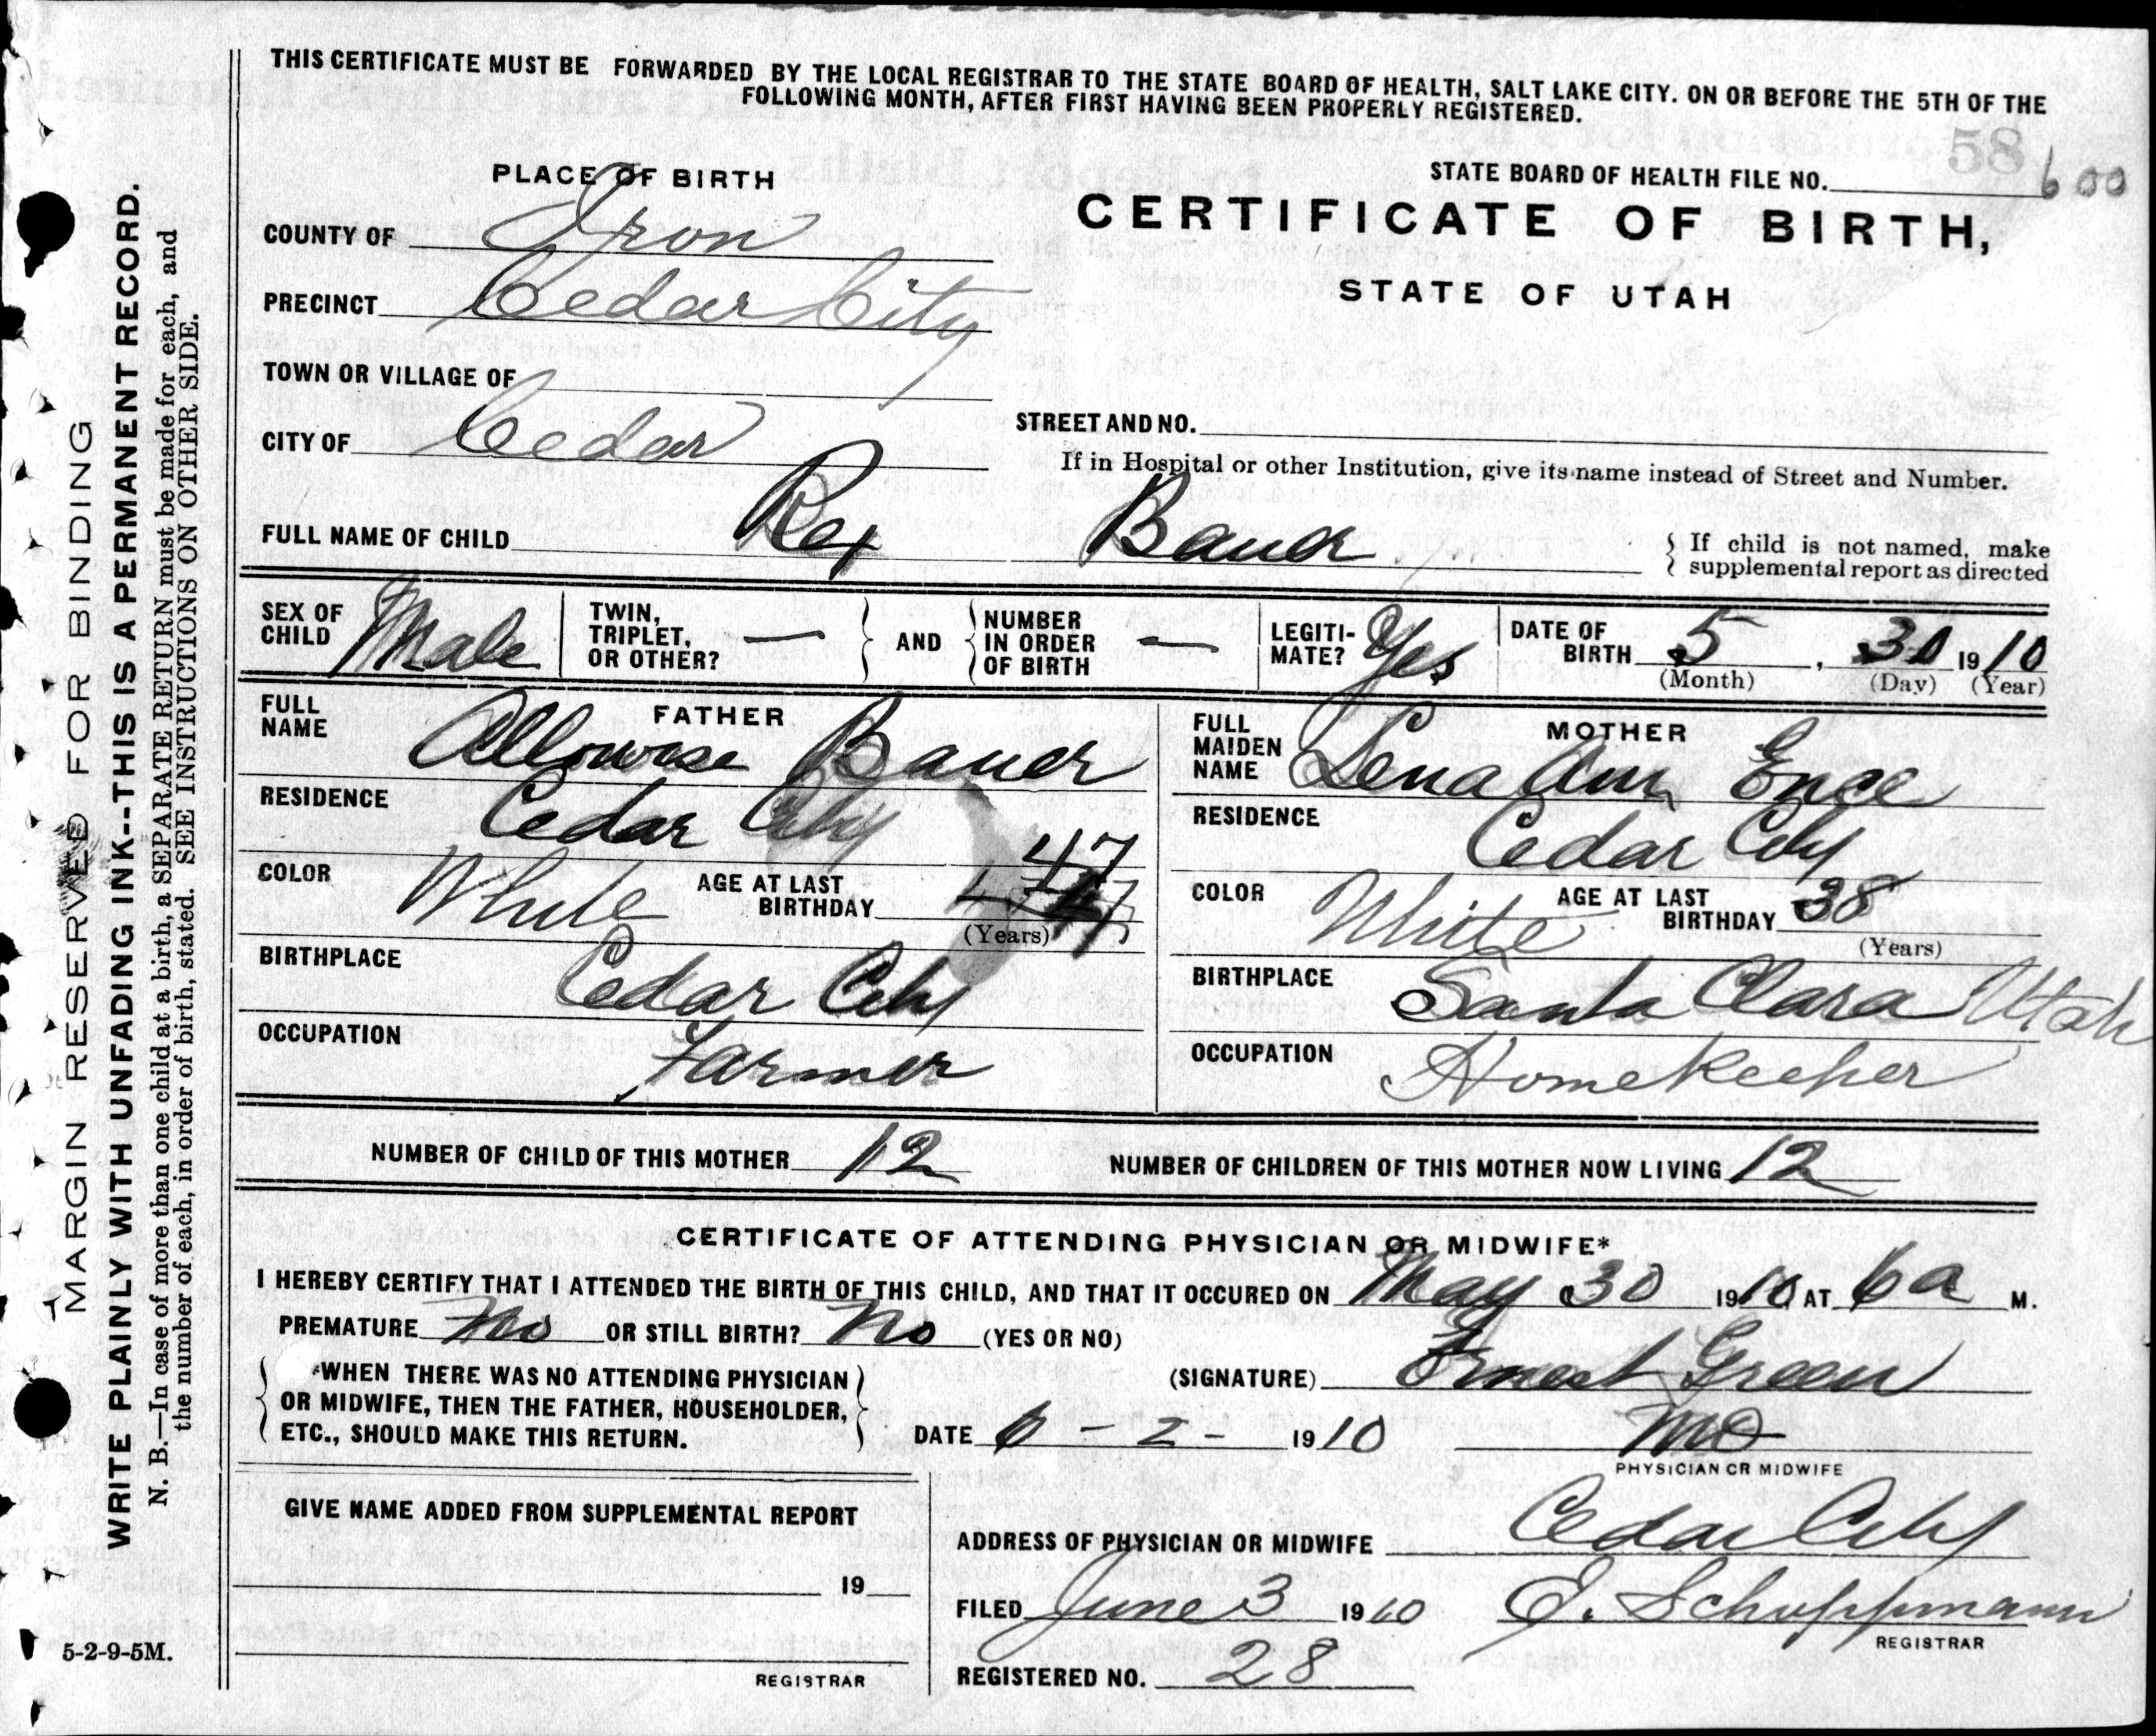 THIS CERTIFICATE MUST BE FORWARDED BY THE LOCAL REGISTRAR TO THE STATE BOARD OF HEALTH, SALT LAKE CITY. ON OR BEFORE THE 5TH OF THE
FOLLOWING MONTH, AFTER FIRST HAVING BEEN PROPERLY REGISTERED.
58
PLACE OF BIRTH
STATE BOARD OF HEALTH FILE NO. 600
COUNTY OF Iron
CERTIFICATE OF BIRTH,
PRECINCT Cedar City
STATE OF UTAH
TOWN OR VILLAGE OF
STREET AND NO.
CITY OF Cedar
If in Hospital or other Institution, give its name instead of Street and Number.
FULL NAME OF CHILD Rex Bauer
{ If child is not named, make
supplemental report as directed
SEX OF CHILD Male
TWIN, TRIPLET, OR OTHER? — } AND { NUMBER IN ORDER OF BIRTH —
LEGITI-MATE? Yes
DATE OF BIRTH 5, 30 1910
(Month) (Day) (Year)
FATHER
FULL NAME Allowise Bauer
RESIDENCE Cedar City
COLOR White AGE AT LAST BIRTHDAY 47
(Years)
BIRTHPLACE Cedar City
OCCUPATION Farmer
MOTHER
FULL MAIDEN NAME Lena Ann Ence
RESIDENCE Cedar City
COLOR White AGE AT LAST BIRTHDAY 38
(Years)
BIRTHPLACE Santa Clara Utah
OCCUPATION Homekeeper
NUMBER OF CHILD OF THIS MOTHER 12 NUMBER OF CHILDREN OF THIS MOTHER NOW LIVING 12
CERTIFICATE OF ATTENDING PHYSICIAN OR MIDWIFE*
I HEREBY CERTIFY THAT I ATTENDED THE BIRTH OF THIS CHILD, AND THAT IT OCCURED ON May 30 1910 AT 6 a M.
PREMATURE No OR STILL BIRTH? No (YES OR NO)
{ *WHEN THERE WAS NO ATTENDING PHYSICIAN
OR MIDWIFE, THEN THE FATHER, HOUSEHOLDER,
ETC., SHOULD MAKE THIS RETURN. }
(SIGNATURE) Ernest Green
DATE 6 - 2 - 1910 MD
PHYSICIAN OR MIDWIFE
GIVE NAME ADDED FROM SUPPLEMENTAL REPORT
19
REGISTRAR
ADDRESS OF PHYSICIAN OR MIDWIFE Cedar City
FILED June 3 1910 E. Schoppmann
REGISTRAR
REGISTERED NO. 28
5-2-9-5M.
MARGIN RESERVED FOR BINDING
WRITE PLAINLY WITH UNFADING INK--THIS IS A PERMANENT RECORD.
N. B.—In case of more than one child at a birth, a SEPARATE RETURN must be made for each, and
the number of each, in order of birth, stated. SEE INSTRUCTIONS ON OTHER SIDE.